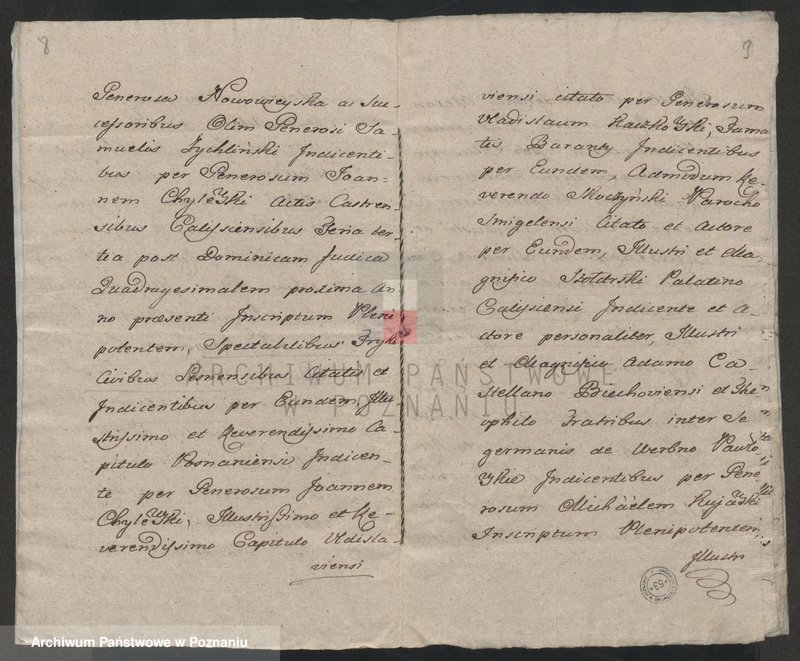 8
Generosa Nowowieyska ac Suc-
cessoribus Olim Generosi Sa-
muelis Zychliński Indicenti-
bus per Generosum Joan-
nem Chylewski Actis Castren-
sibus Calissiensibus Feria ter-
tia post Dominicam Judica
Quadragesimalem proxima an-
no præsenti Inscriptum Pleni
potentem, Spectabilibus
Civibus Lesnensibus Citatis et
Indicentibus per Eundem, Illu-
strissimo et Reverendissimo Ca-
pitulo Posnaniensi Indicen-
te per Generosum Joannem
Chylewski, Illustrissimo et Re-
verendissimo Capitulo Vldisla-
viensi
9
viensi citato per Generosum
Vladislaum Raczkowski, Fama
tis Baranty Indicentibus
per Eundem, Admodum Re-
verendo Skoczyński Parocho
Smigelensi Citato et Actore
per Eundem, Illustri et Ma-
gnifico Szoldrski Palatino
Calissiensi Indicente et A-
ctore personaliter, Illustri
et Magnifico Adamo Ca-
stellano Biechoviensi et The-
ophilo Fratribus inter Se
germanis de Werbno
Indicentibus per Gene
rosum Michàélem Kujawski
Inscriptum Plenipotentem
Illustri
ARCHIWUM PAŃSTWOWE
W POZNANIU
53
Archiwum Państwowe w Poznaniu